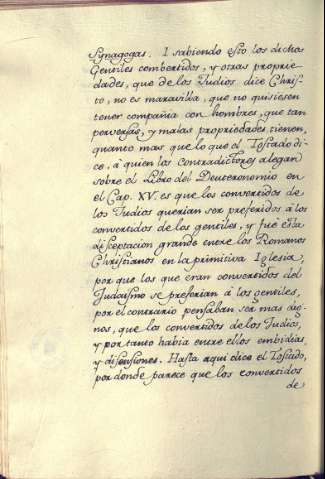 Synagogas. I sabiendo esto los dichos
Gentiles combertidos, y otras proprie-
dades, que de los Judios dice Chris-
to, no es maravilla, que no quisiesen
tener compañia con hombres, que tan
perversas, y malas propriedades tienen,
quanto mas que lo que el Tostado di-
ce, á quien los contradictores alegan
sobre el Libro del Deuteronomio en
el Cap. XV. es que los convertidos de
los Judios querian ser preferidos á los
convertidos de los gentiles, y fué esta
disceptacion grande entre los Romanos
Christianos en la primitiva Iglesia,
por que los que eran convertidos del
Judaismo se preferian á los gentiles,
por el contrario pensaban ser mas dig-
nos, que los convertidos de los Judios,
y por tanto habia entre ellos embidias,
y disensiones. Hasta aqui dice el Tostado,
por donde parece que los convertidos
de